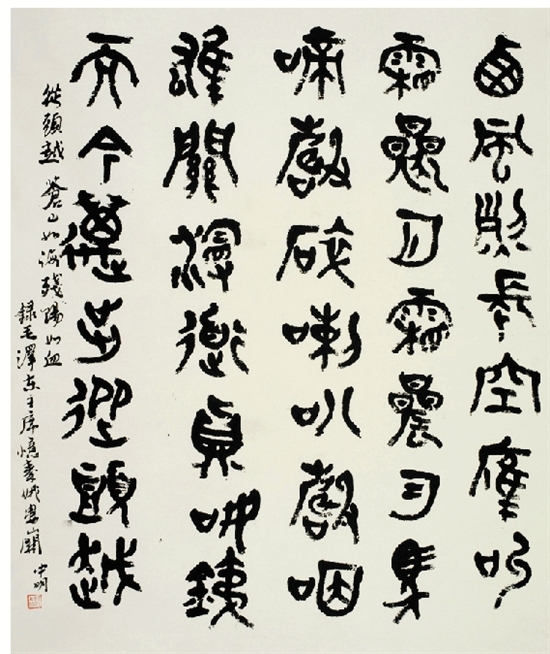 西風烈長空雁叫
霜晨月霜晨月馬
蹄聲碎喇叭聲咽
雄關漫道真如鐵
而今邁步從頭越
從頭越蒼山如海殘陽如血
錄毛澤東主席憶秦娥婁山關